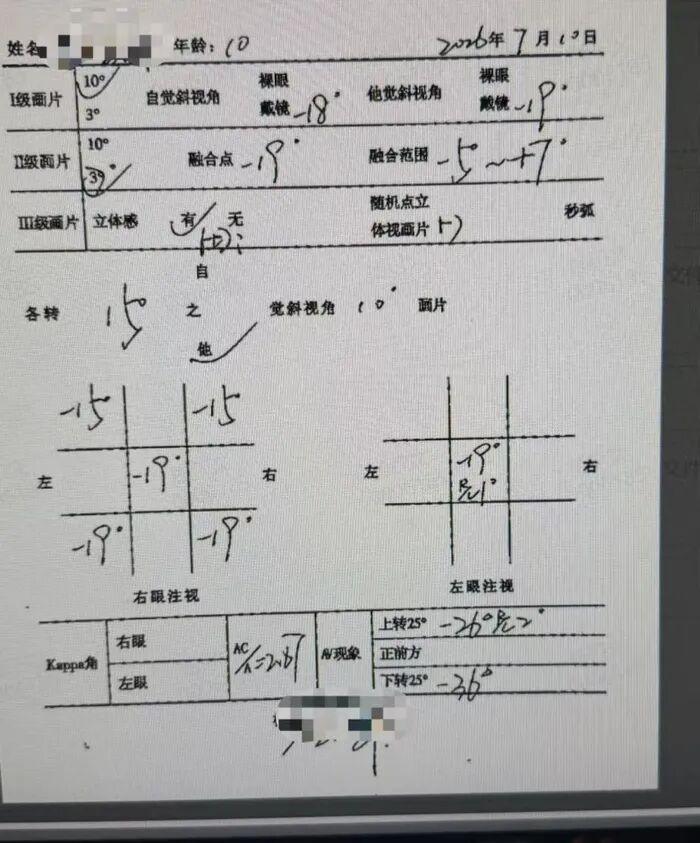 姓名 年龄:10 2026年7月10日
I级画片 10° 3° 自觉斜视角 裸眼 戴镜 -18° 他觉斜视角 裸眼 戴镜 -19°
II级画片 10° 3° 融合点 -19° 融合范围 -5°~+7°
III级画片 立体感 有 无 随机点立体视画片 秒弧
各转 15° 之 自 他 觉斜视角 10° 画片
-15° -15
-19°
-19° -19°
左 右
右眼注视
-19°
左 右
左眼注视
Kappa角 右眼 左眼 AC/A=2.67 AV现象 上转25° -26° 正前方 下转25° -36°